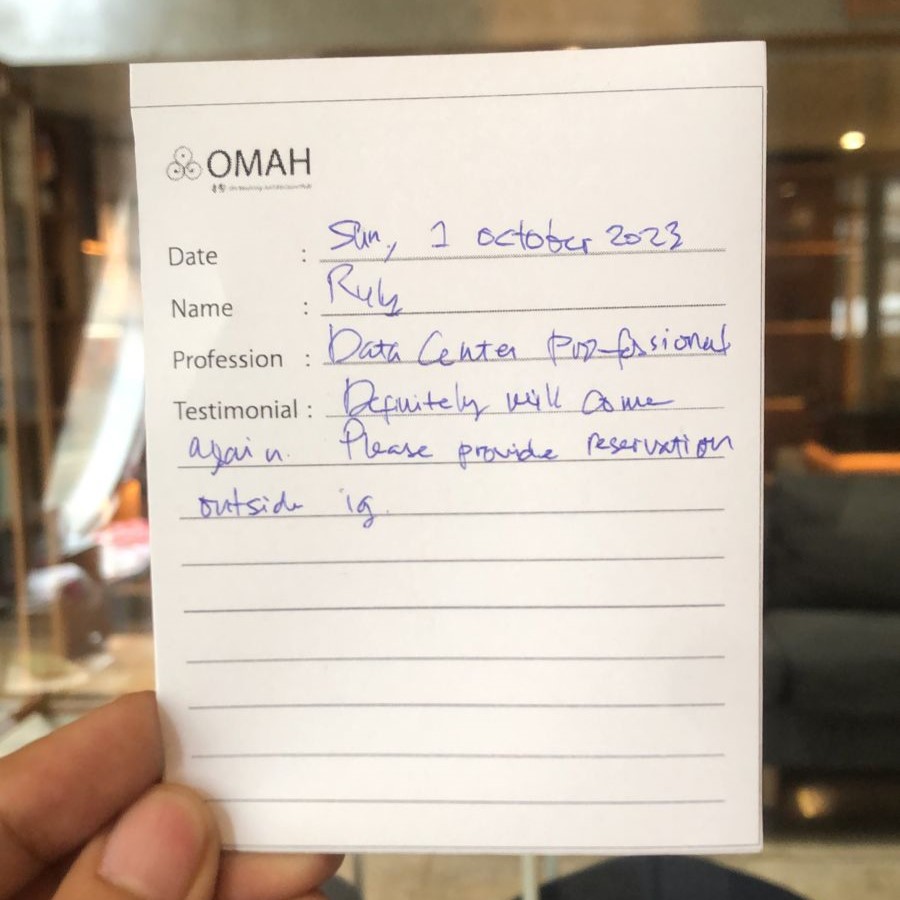 OMAH
Date : Sun, 1 october 2023
Name : Ruly
Profession : Data Center Professional
Testimonial : Definitely will come
again. Please provide reservation
outside ig.